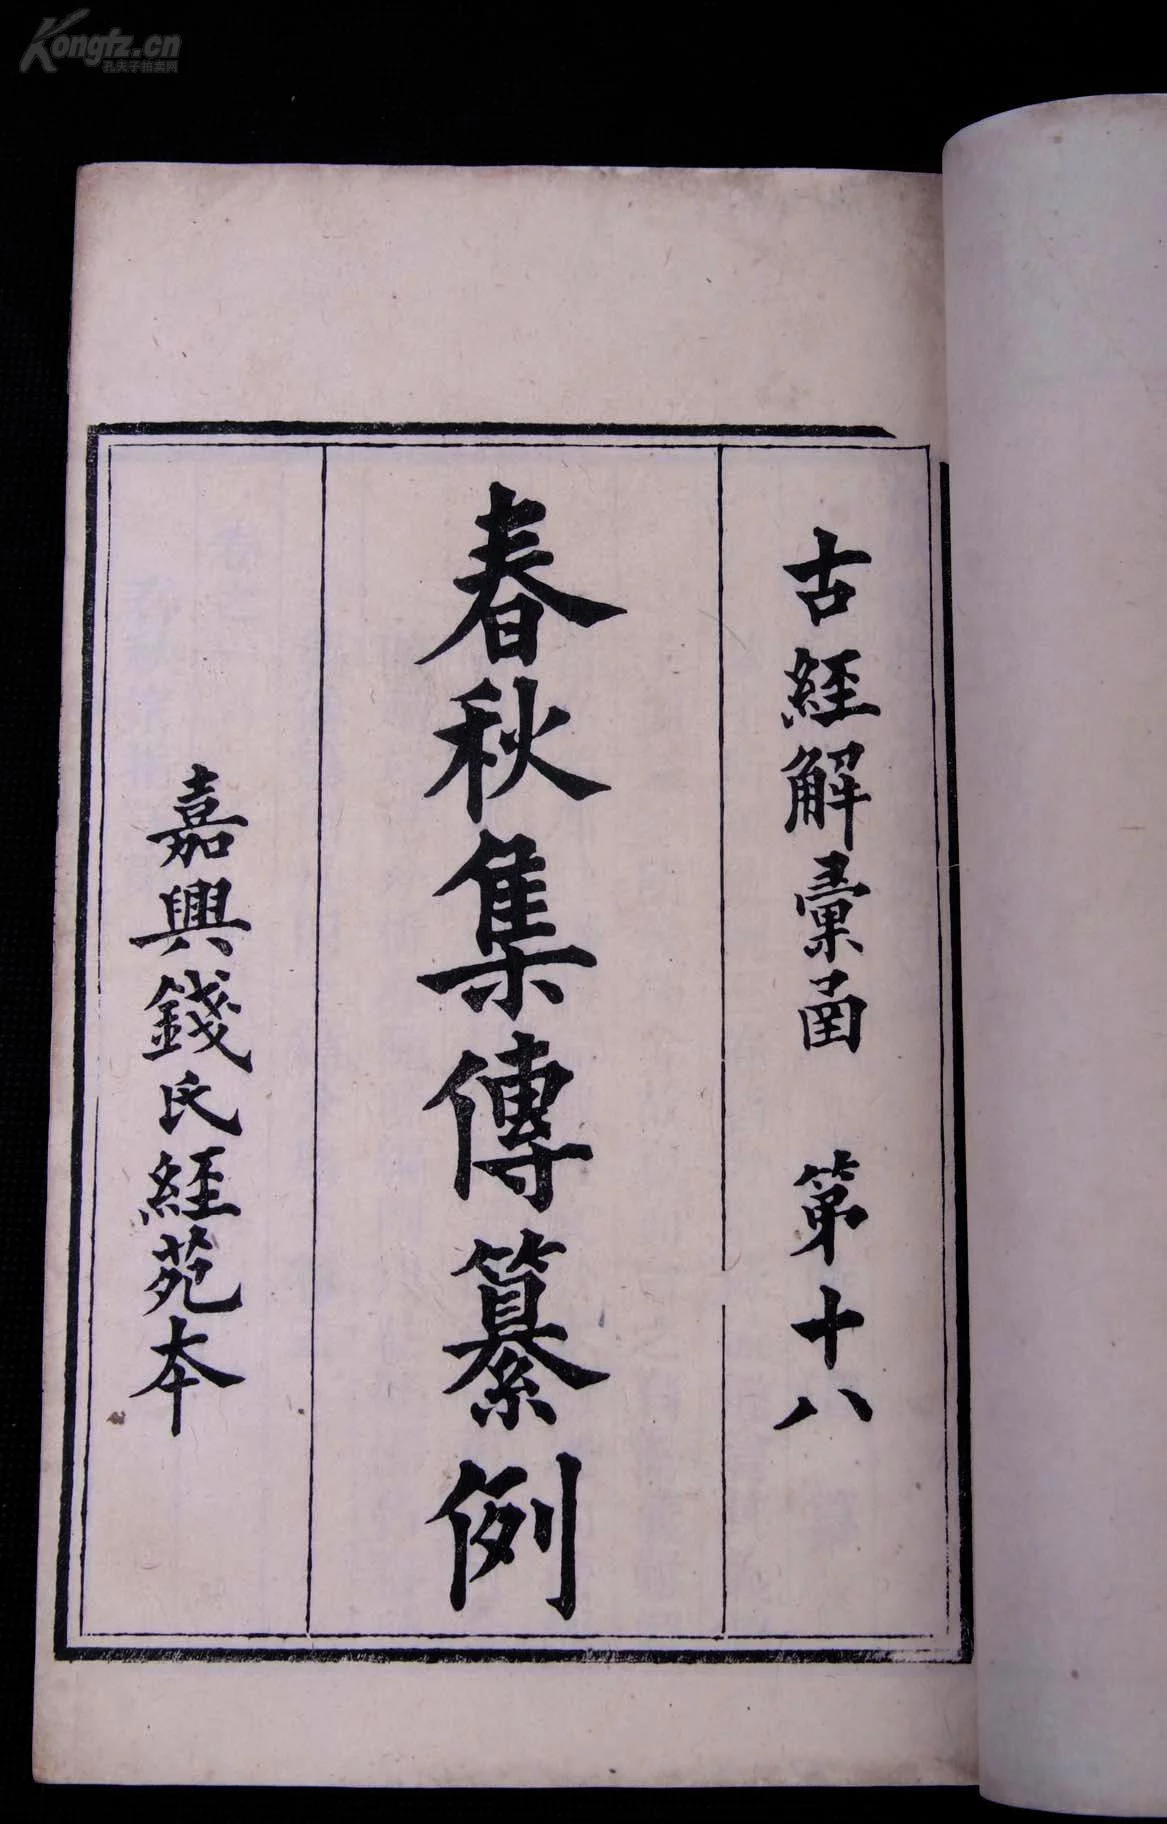 Kongfz.cn
孔夫子拍卖网
古經解彙函 第十八
春秋集傳纂例
嘉興錢氏經苑本